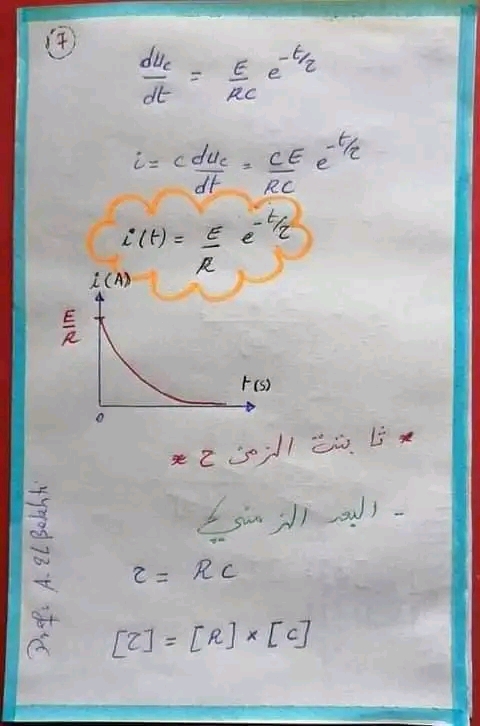 7
du_c/dt = E/RC e^{-t/τ}
i = c du_c/dt = CE/RC e^{-t/τ}
i(t) = E/R e^{-t/τ}
i(A)
E/R
t(s)
0
* ثابتة الزمن τ *
- البعد الزمني لـ τ
τ = RC
[τ] = [R] × [C]
Prof. A. El Bekhti